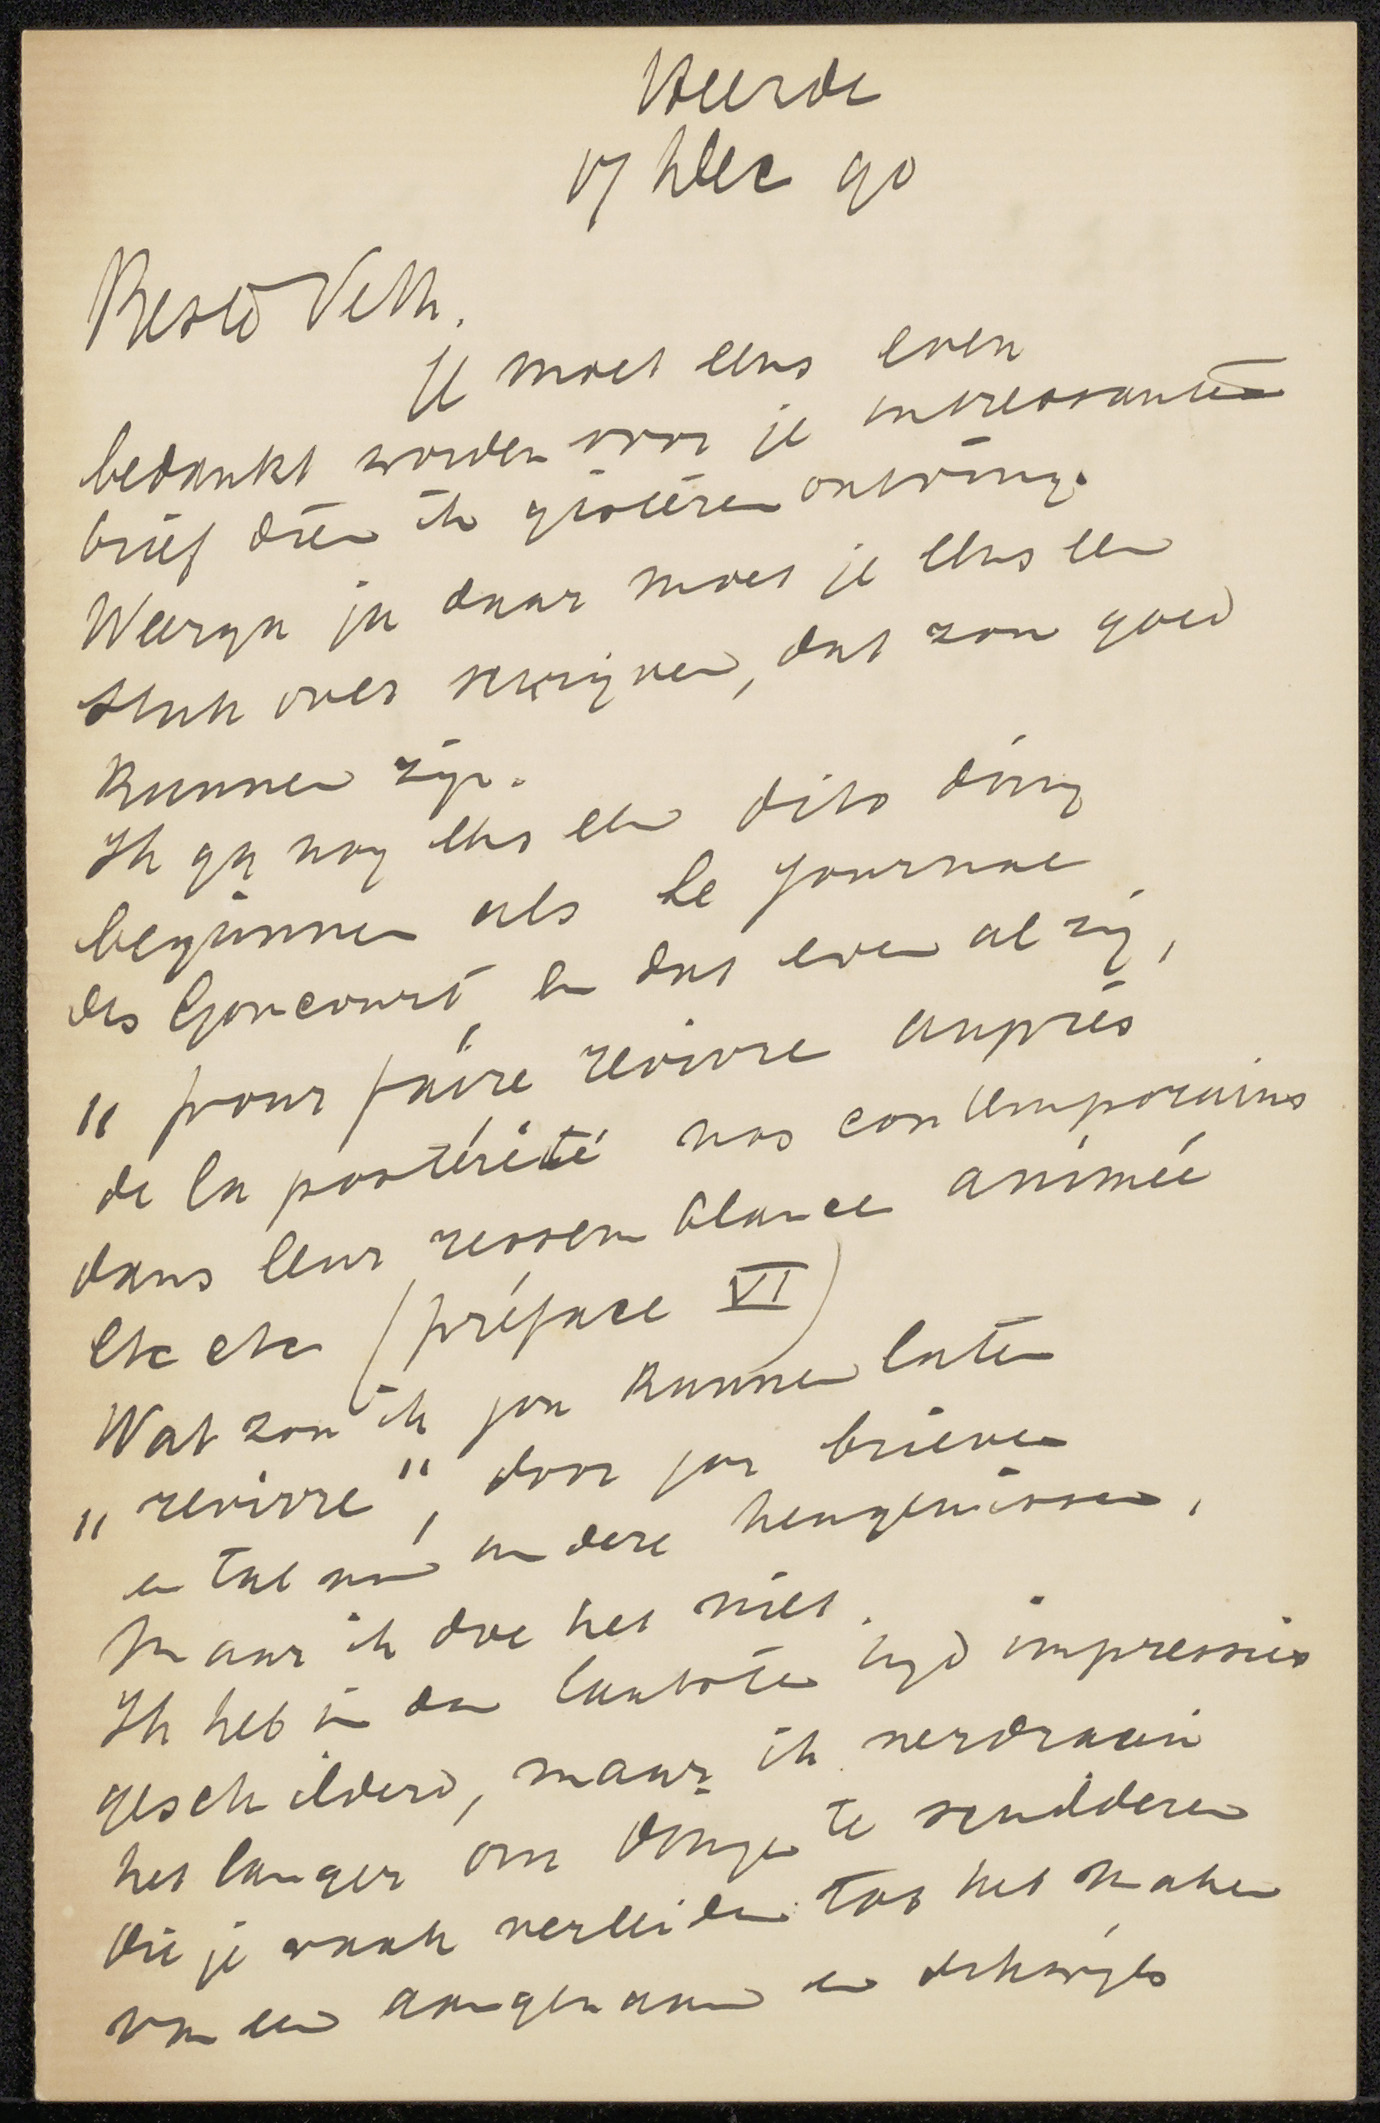 Heerde
17 Dec 90
Beste Veth.
Je moet eens even
bedankt worden voor je intressanten
brief dien ik gisteren ontving.
Weerga ja daar moet je eens een
stuk over schrijven, dat zou goed
kunnen zijn.
Ik ga nog eens een dito ding
beginnen als le journal
des Goncourt, en dat even als zij,
"pour faire revivre auprès
de la postérité nos contemporains
dans leur ressemblance animée
etc etc (préface VI)
Wat zou ik jou kunnen laten
"revivre", door jou brieven
en tal van andere heugenissen,
maar ik doe het niet.
Ik heb in den laatsten tijd impressies
geschilderd, maar ik verdraai
het langer om dingen te schilderen
die je vaak verleiden tot het maken
van een aangenaam en